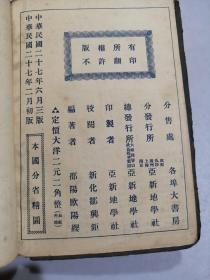 版權所有
不許翻印
各埠大書房
分售處
分發行所
亞新地學社
總發行所
亞新地學社
印製者
亞新地學社
校閱者
新化鄒興鉅
編著者
邵陽歐陽纓
定價大洋二元二角整
本國分省精圖
中華民國二十七年二月初版
中華民國二十七年六月三版